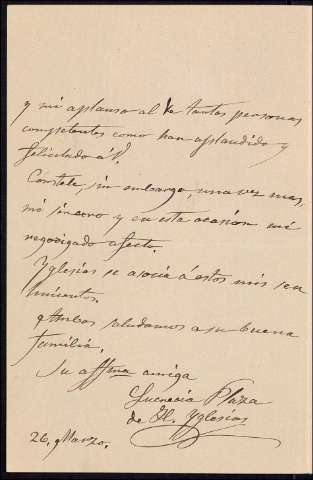 y mi aplauso al de tantas personas
competentes como han aplaudido y
felicitado á V.
Cónstele, sin embargo, una vez mas,
mi sincero y en esta ocasión mi
regocigado afecto.
Yglesias se asocia á estos mis sen
timientos.
Ambos saludamos a su buena
familia.
Su affma amiga
Lucrecia Plaza
de Yglesias
26, Marzo.